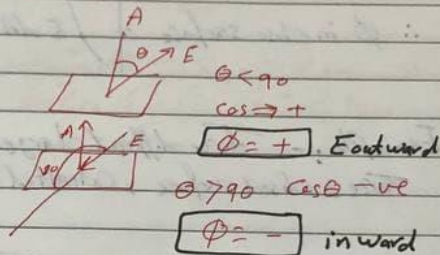 A
θ E
θ < 90
cos → +
ϕ = + E outward
A E
θ > 90 Cosθ -ve
ϕ = - inward